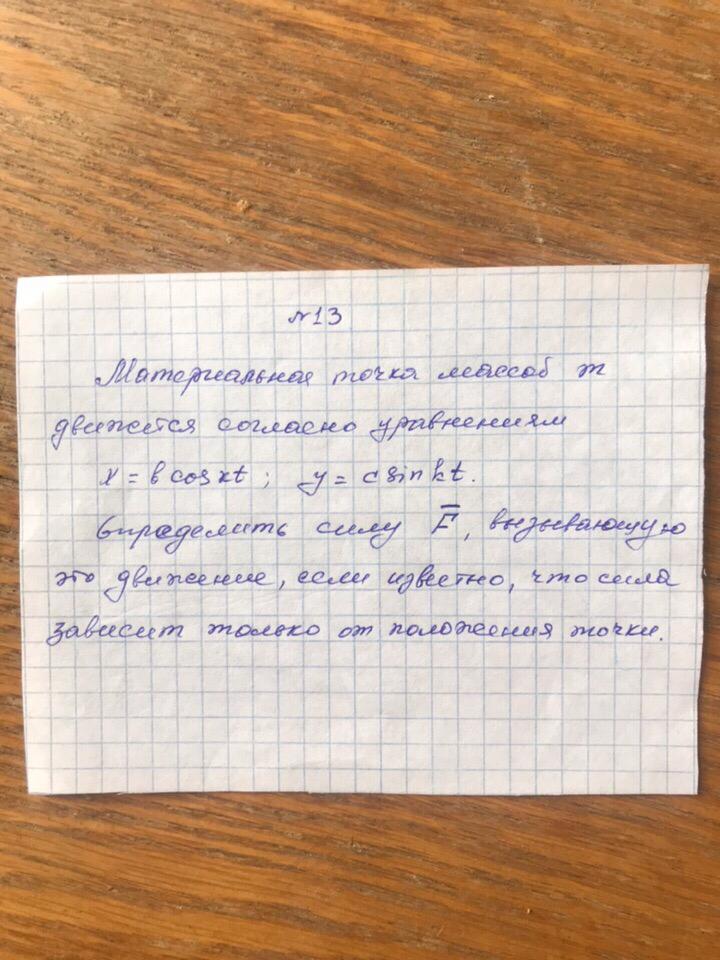 №13
Материальная точка массой m
движется согласно уравнениям
x = b cos kt ; y = c sin kt.
Определить силу F̅, вызывающую
это движение, если известно, что сила
зависит только от положения точки.